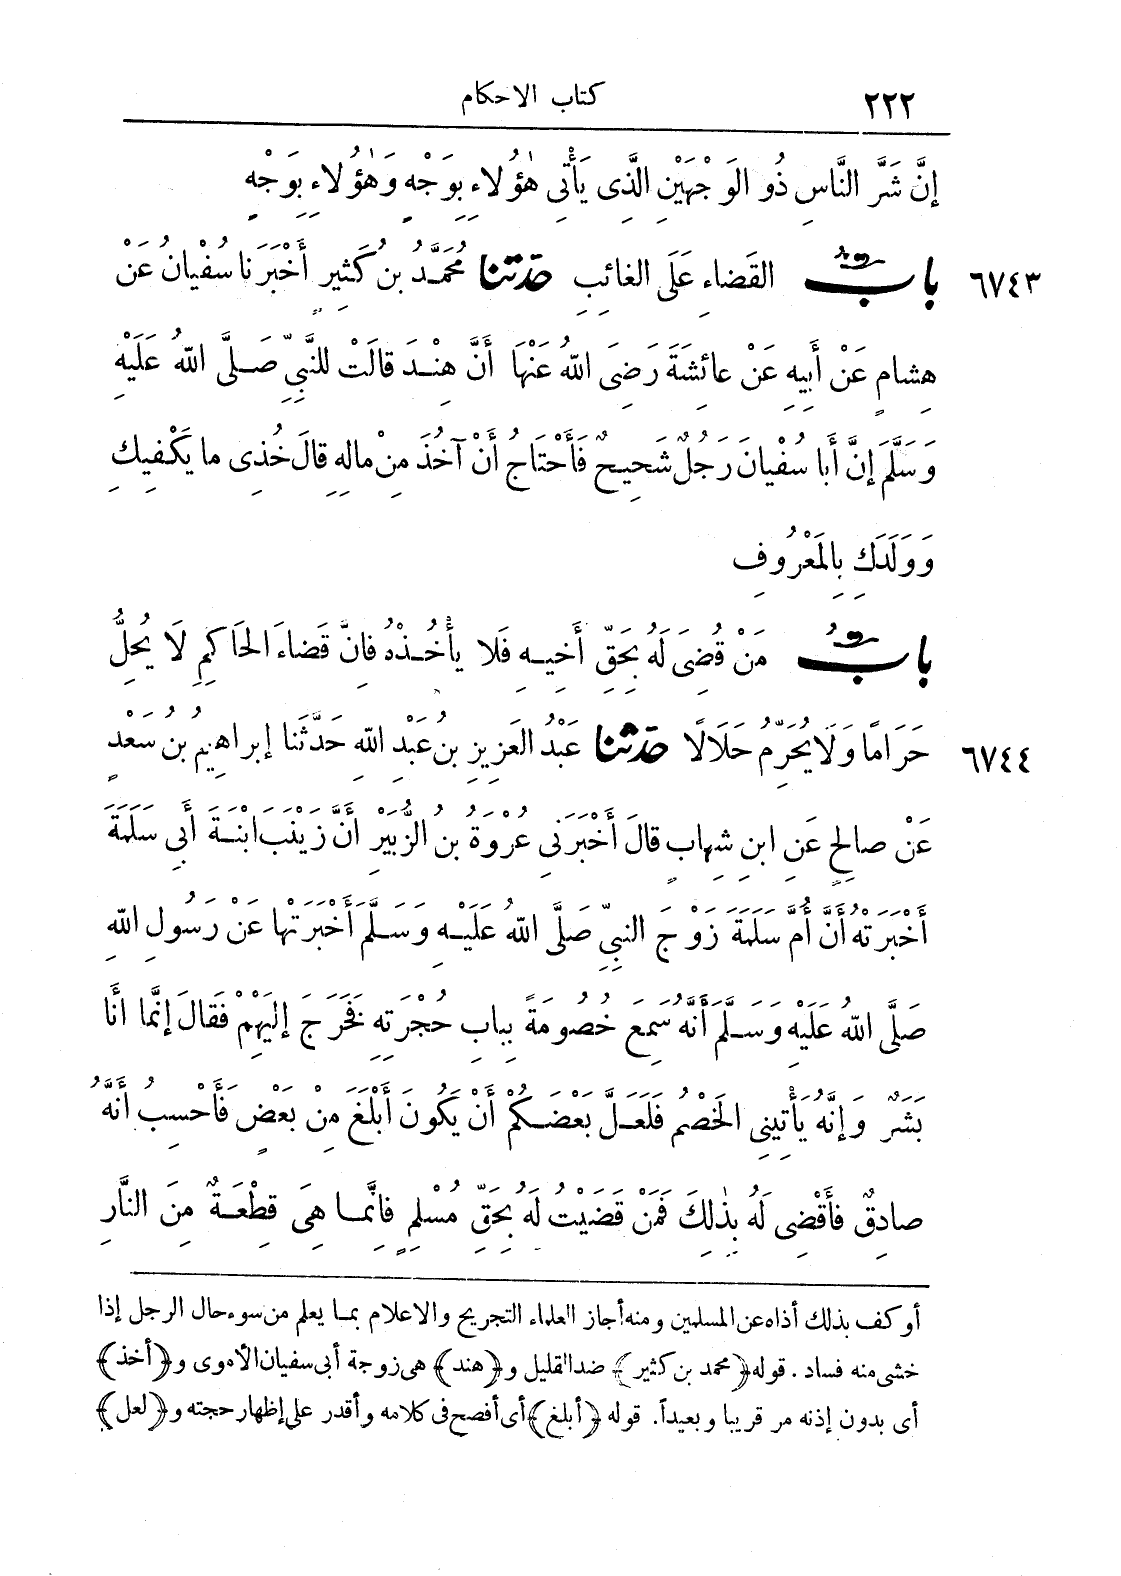 ٢٢٢ كتاب الاحكام
إِنَّ شَرَّ النَّاسِ ذُو الوَجْهَيْنِ الَّذِى يَأْتِى هٰؤُلَاءِ بِوَجْهٍ وَهٰؤُلَاءِ بِوَجْهٍ
٦٧٤٣ باب القَضاءِ عَلَى الغائِبِ حدّثنا مُحَمَّدُ بنُ كَثِيرٍ أَخْبَرَنا سُفْيانُ عَنْ
هِشامٍ عَنْ أَبِيهِ عَنْ عائِشَةَ رَضِىَ اللهُ عَنْهَا أَنَّ هِنْدَ قالَتْ للنَّبِىِّ صَلَّى اللهُ عَلَيْهِ
وَسَلَّمَ إِنَّ أَبا سُفْيانَ رَجُلٌ شَحِيحٌ فَأَحْتاجُ أَنْ آخُذَ مِنْ مالِهِ قالَ خُذِى ما يَكْفِيكِ
وَوَلَدَكِ بِالمَعْرُوفِ
باب مَنْ قُضِىَ لَهُ بِحَقِّ أَخِيهِ فَلا يَأْخُذْهُ فانَّ قَضاءَ الحَاكِمِ لَا يُحِلُّ
٦٧٤٤ حَرَامًا وَلَا يُحَرِّمُ حَلَالًا حدّثنا عَبْدُ العَزِيزِ بنُ عَبْدِ اللهِ حَدَّثَنا إبراهِيمُ بنُ سَعْدٍ
عَنْ صالِحٍ عَنِ ابنِ شِهابٍ قالَ أَخْبَرَنِى عُرْوَةُ بنُ الزُّبَيْرِ أَنَّ زَيْنَبَ ابْنَةَ أَبِى سَلَمَةَ
أَخْبَرَتْهُ أَنَّ أُمَّ سَلَمَةَ زَوْجَ النبِىِّ صَلَّى اللهُ عَلَيْهِ وَسَلَّمَ أَخْبَرَتْها عَنْ رَسُولِ اللهِ
صَلَّى اللهُ عَلَيْهِ وَسَلَّمَ أَنَّهُ سَمِعَ خُصُومَةً بِبابِ حُجْرَتِهِ فَخَرَجَ إِلَيْهِمْ فَقالَ إِنَّما أنَا
بَشَرٌ وَإِنَّهُ يَأْتِينِى الخَصْمُ فَلَعَلَّ بَعْضَكُمْ أَنْ يَكُونَ أَبْلَغَ مِنْ بَعْضٍ فَأَحْسِبُ أَنَّهُ
صادِقٌ فأَقْضِى لَهُ بِذٰلِكَ فَمَنْ قَضَيْتُ لَهُ بِحَقِّ مُسْلِمٍ فانَّمَا هِىَ قِطْعَةٌ مِنَ النَّارِ
أو كف بذلك أذاه عن المسلمين ومنه أجاز العلماء التجريح والاعلام بما يعلم من سوء حال الرجل إذا
خشى منه فساد . قوله ﴿محمد بن كثير﴾ ضد القليل و﴿هند﴾ هى زوجة أبى سفيان الأموى و﴿أخذ﴾
أى بدون إذنه مر قريبا وبعيداً. قوله ﴿أبلغ﴾ أى أفصح فى كلامه وأقدر على إظهار حجته و﴿لعل﴾